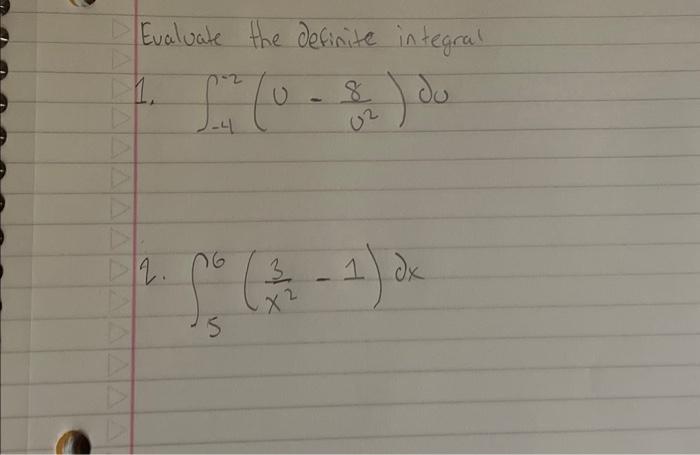 Evaluate the definite integral
1. ∫_{-4}^{-2} (u - 8/u²) du
2. ∫_{5}^{6} (3/x² - 1) dx